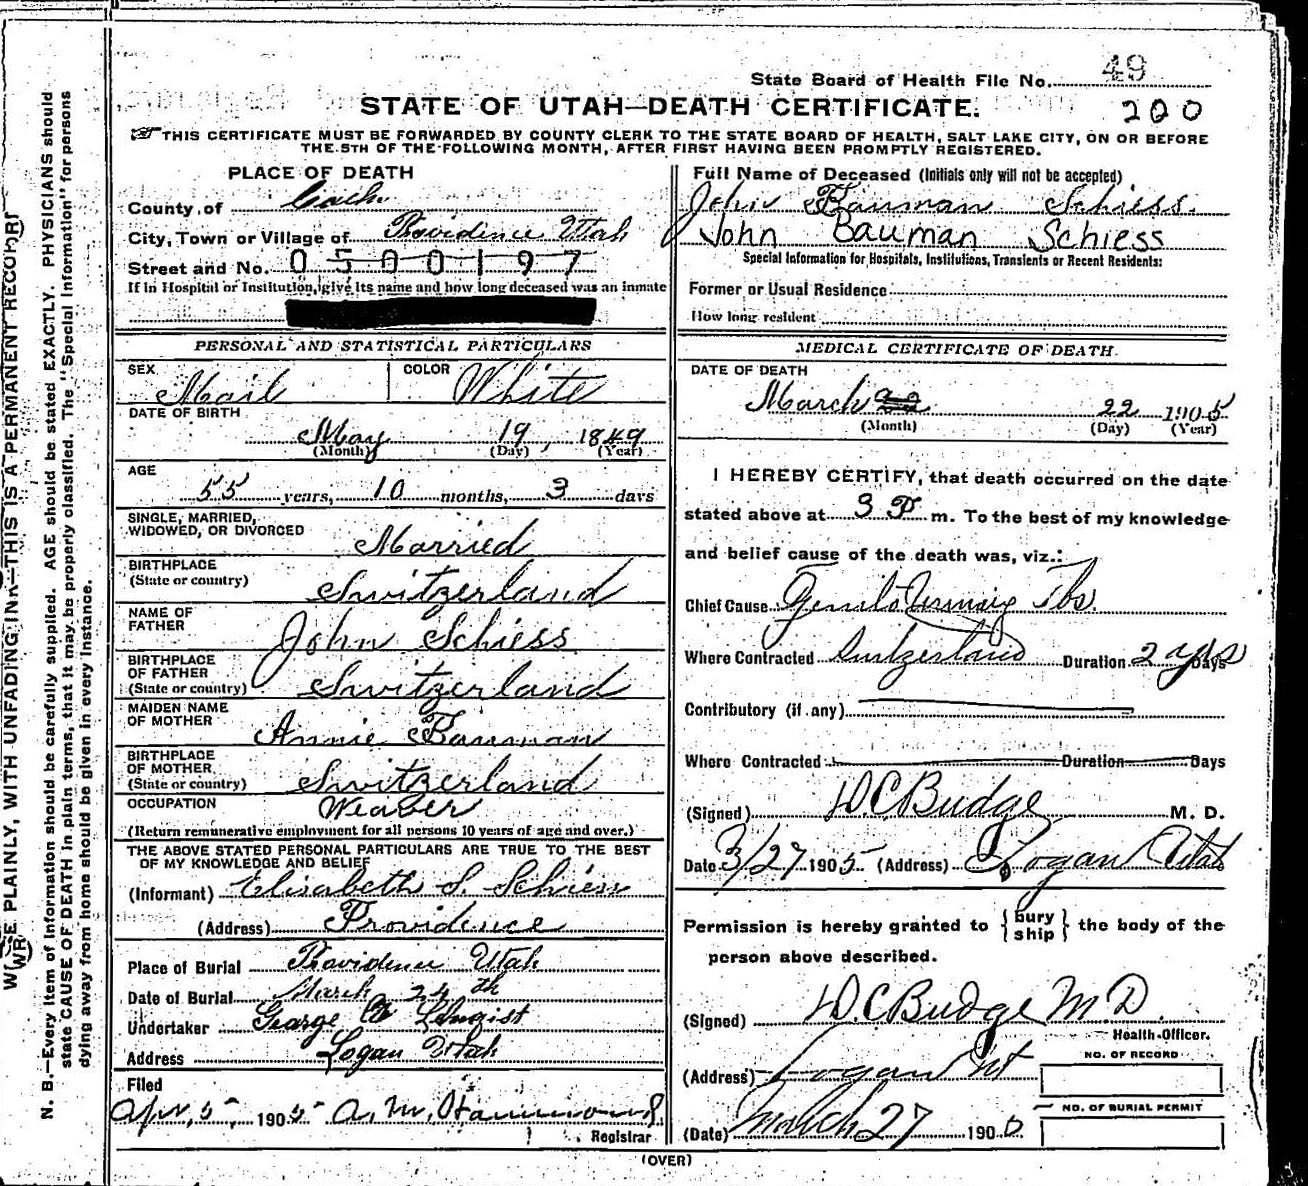 State Board of Health File No. 49
STATE OF UTAH—DEATH CERTIFICATE.
200
THIS CERTIFICATE MUST BE FORWARDED BY COUNTY CLERK TO THE STATE BOARD OF HEALTH, SALT LAKE CITY, ON OR BEFORE
THE 5TH OF THE FOLLOWING MONTH, AFTER FIRST HAVING BEEN PROMPTLY REGISTERED.
PLACE OF DEATH
County of Cache
City, Town or Village of Providence Utah
Street and No. 0500197
If in Hospital or Institution, give its name and how long deceased was an inmate
PERSONAL AND STATISTICAL PARTICULARS
SEX Mail COLOR White
DATE OF BIRTH
May 19, 1849
(Month) (Day) (Year)
AGE
55 years, 10 months, 3 days
SINGLE, MARRIED,
WIDOWED, OR DIVORCED Married
BIRTHPLACE
(State or country) Switzerland
NAME OF
FATHER John Schiess
BIRTHPLACE
OF FATHER
(State or country) Switzerland
MAIDEN NAME
OF MOTHER Annie Bauman
BIRTHPLACE
OF MOTHER
(State or country) Switzerland
OCCUPATION Weaber
(Return remunerative employment for all persons 10 years of age and over.)
THE ABOVE STATED PERSONAL PARTICULARS ARE TRUE TO THE BEST
OF MY KNOWLEDGE AND BELIEF
(Informant) Elisabeth S. Schiess
(Address) Providence
Place of Burial Providence Utah
Date of Burial March 24th
Undertaker George
Address Logan Utah
Filed
Apr. 5, 1905 A. M. Hammond
Registrar
Full Name of Deceased (Initials only will not be accepted)
John Bauman Schiess.
John Bauman Schiess
Special Information for Hospitals, Institutions, Transients or Recent Residents:
Former or Usual Residence
How long resident
MEDICAL CERTIFICATE OF DEATH.
DATE OF DEATH
March 22 22 1905
(Month) (Day) (Year)
I HEREBY CERTIFY, that death occurred on the date
stated above at 3 P. m. To the best of my knowledge
and belief cause of the death was, viz.:
Chief Cause Genito Urinary Tbs.
Where Contracted Switzerland Duration 2 yrs Days
Contributory (if any)
Where Contracted Duration Days
(Signed) D.C. Budge M. D.
Date 3/27 1905 (Address) Logan Utah
Permission is hereby granted to { bury ship } the body of the
person above described.
(Signed) D.C. Budge M D.
Health Officer.
(Address) Logan Ut
NO. OF RECORD
NO. OF BURIAL PERMIT
(Date) March 27 190
(OVER)
WRITE PLAINLY, WITH UNFADING INK—THIS IS A PERMANENT RECORD
N. B.—Every item of information should be carefully supplied. AGE should be stated EXACTLY. PHYSICIANS should
state CAUSE OF DEATH in plain terms, that it may be properly classified. The "Special Information" for persons
dying away from home should be given in every instance.